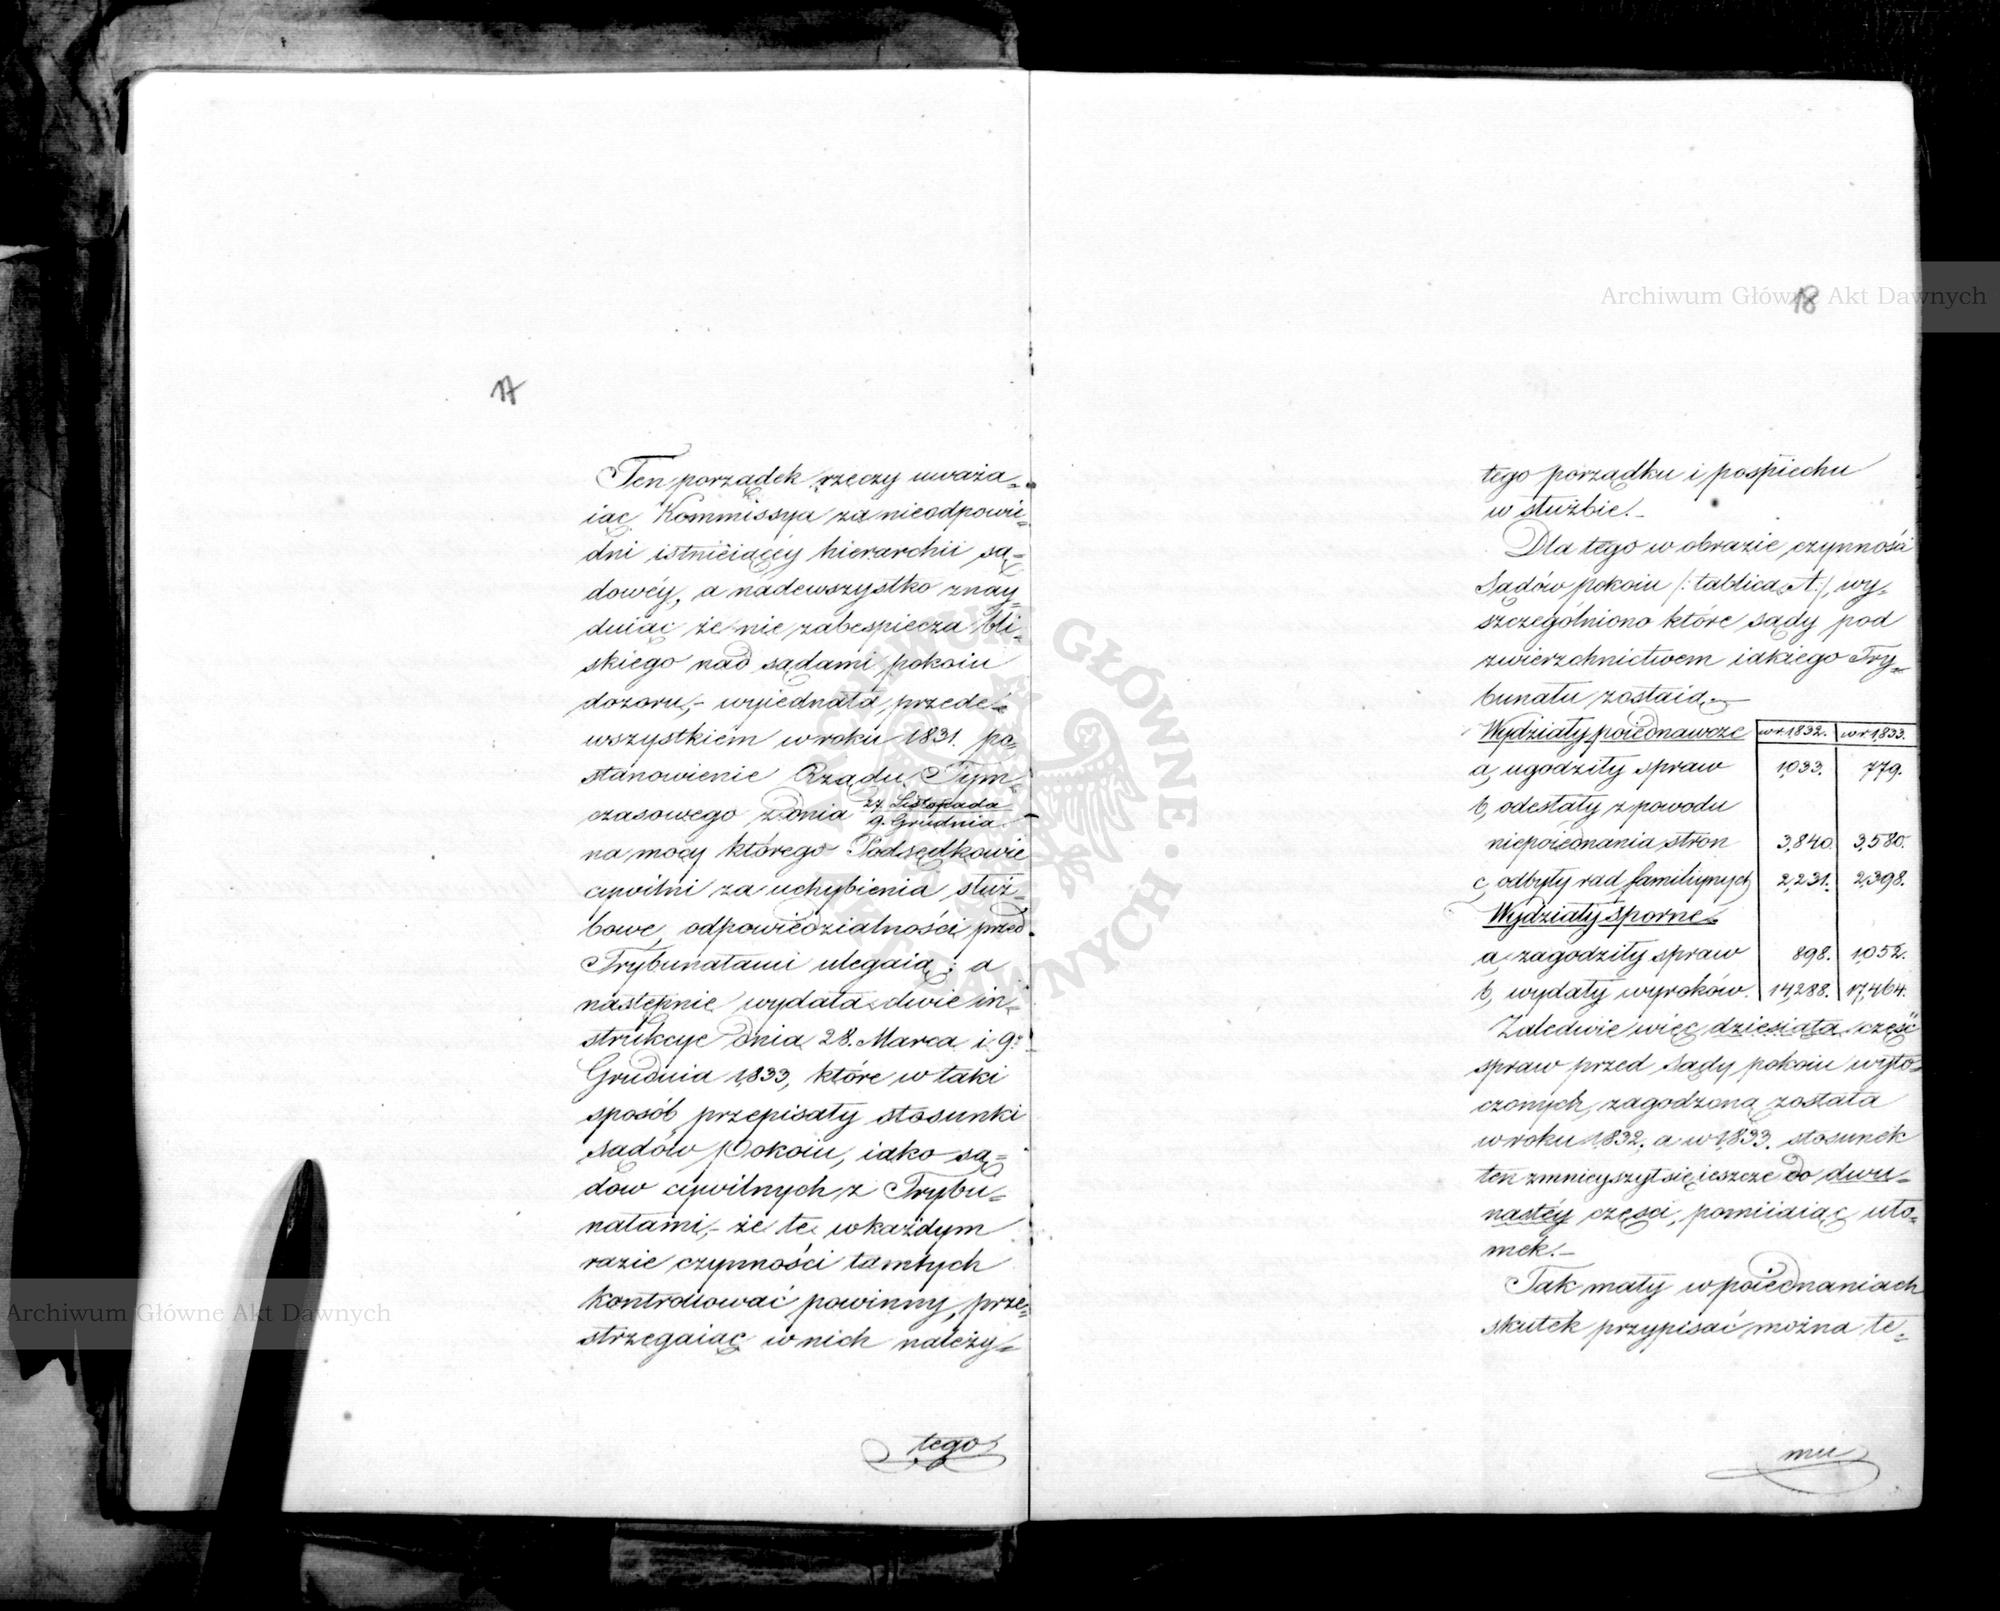 17
Ten porządek rzeczy uważa=
iąc Kommissya za nieodpowie=
dni istnieiącéy hierarchii są=
dowéy, a nadewszystko znay=
duiąc że nie zabespiecza bli=
skiego nad sądami pokoiu
dozoru,- wyiednała, przede=
wszystkiem w roku 1831. po=
stanowienie Rządu Tym=
czasowego z dnia 27. Listopada / 9. Grudnia
na mocy którego Podsędkowie
cywilni za uchybienia służ=
bowe, odpowiedzialności przed
Trybunałami ulegaią; a
następnie wydała dwie in=
strukcye dnia 28. Marca i 9.
Grudnia 1833, które w taki
sposób przepisały stosunki
sądów Pokoiu, iako są=
dów cywilnych z Trybu=
nałami,- że te w każdym
razie czynności tamtych
kontrolować powinny, prze=
strzegaiąc w nich należy=
tego
18
tego porządku i pośpiechu
w służbie.-
Dla tego w obrazie czynności
Sądów pokoiu /: tablica A :/, wy=
szczególniono które sądy pod
zwierzchnictwem iakiego Try=
bunału zostaią.-
Wydziały poiednawcze w r 1832. w r 1833.
a, ugodziły spraw 1,033. 779.
b, odesłały z powodu
niepoiednania stron 3,840. 3,580.
c, odbyły rad familiynych 2,231. 2,398.
Wydziały sporne
a, zagodziły spraw 898. 1,052.
b, wydały wyroków. 14,288. 17,464.
Zaledwie więc dziesiąta część
spraw przed Sądy pokoiu wyto=
czonych, zagodzoną została
w roku 1832. a w 1833. stosunek
ten zmnieyszył się ieszcze do dwu=
nastéy części, pomiiaiąc uło=
mek.-
Tak mały w poiednaniach
skutek przypisać można te=
mu
Archiwum Główne Akt Dawnych
Archiwum Główne Akt Dawnych
ARCHIWUM GŁÓWNE · AKT DAWNYCH ·